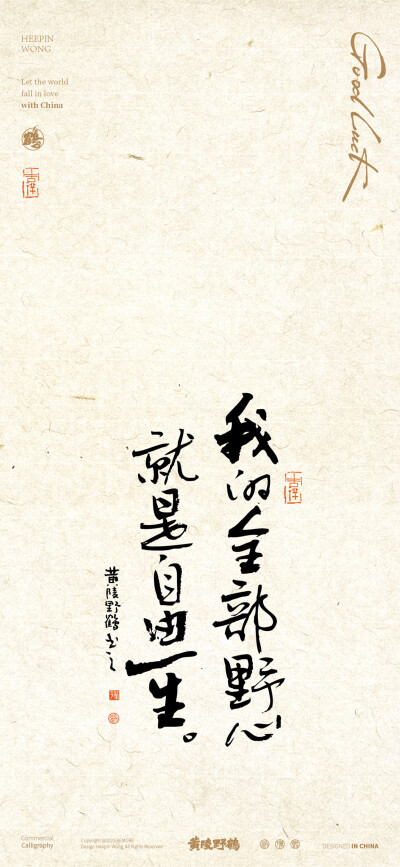 HEEPIN
WONG
Let the world
fall in love
with China
Good Luck
我的全部野心
就是自由一生。
黄陵野鹤书之
Commercial
Calligraphy
黄陵野鹤
DESIGNED IN CHINA